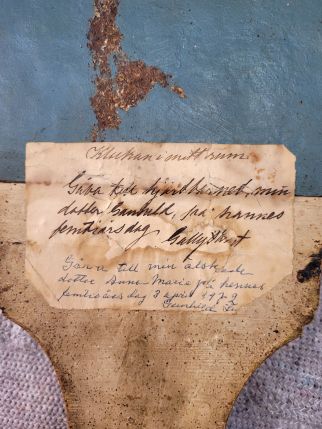 Klockan i mitt rum.
Gåva till hjärtbarnet, min
dotter Gunhild, på hannes
femtiårsdag
Gåva till min älskade
dotter Anna Maria på hennes
femtioårsdag 3 april 1979
Gunhild